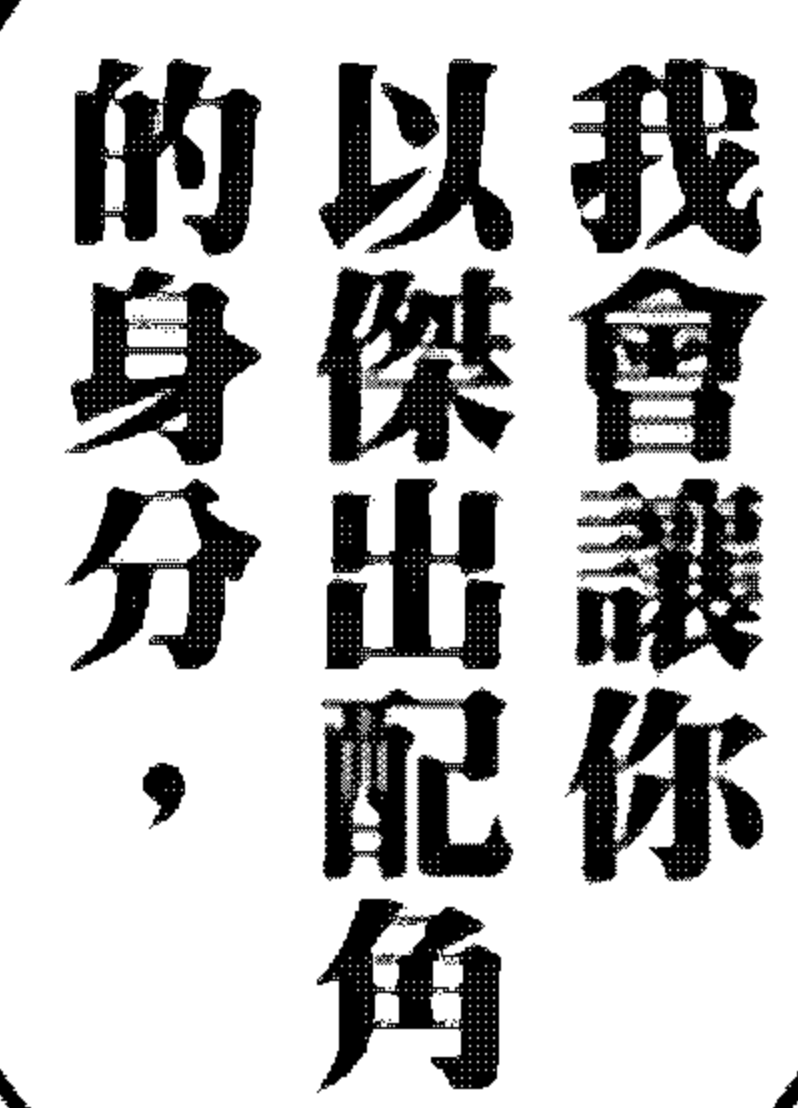 我會讓你
以傑出配角
的身分，